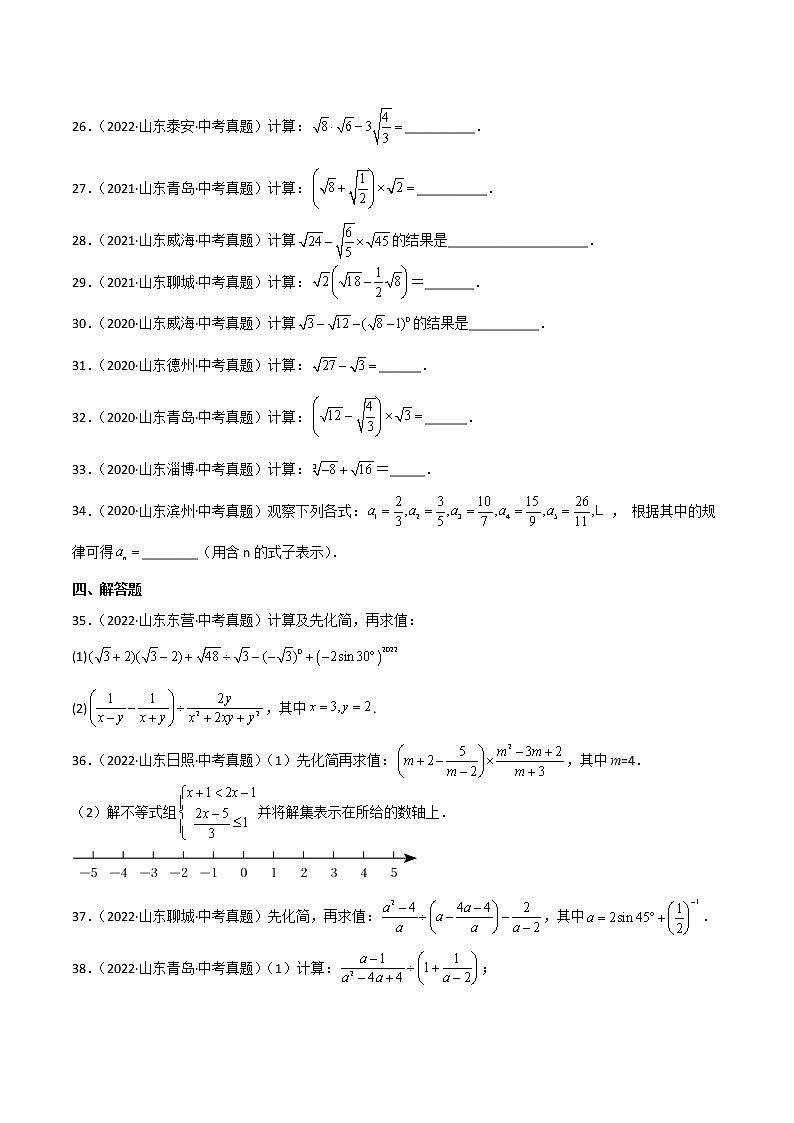 26.（2022·山东泰安·中考真题）计算：√8·√6−3√(4/3)=__________.
27.（2021·山东青岛·中考真题）计算：(√8+√(1/2))×√2=__________.
28.（2021·山东威海·中考真题）计算√24−√(6/5)×√45的结果是____________________.
29.（2021·山东聊城·中考真题）计算：√2(√18−(1/2)√8)=_______.
30.（2020·山东威海·中考真题）计算√3−√12−(√8−1)⁰的结果是__________.
31.（2020·山东德州·中考真题）计算：√27−√3=______.
32.（2020·山东青岛·中考真题）计算：(√12−√(4/3))×√3=______.
33.（2020·山东淄博·中考真题）计算：∛−8+√16=_____.
34.（2020·山东滨州·中考真题）观察下列各式：a₁=2/3,a₂=3/5,a₃=10/7,a₄=15/9,a₅=26/11,L ， 根据其中的规
律可得aₙ=________（用含 n 的式子表示）.
四、解答题
35.（2022·山东东营·中考真题）计算及先化简，再求值：
(1)(√3+2)(√3−2)+√48÷√3−(−√3)⁰+(−2sin30°)²⁰²²
(2)(1/(x−y)−1/(x+y))÷2y/(x²+2xy+y²)，其中x=3,y=2.
36.（2022·山东日照·中考真题）（1）先化简再求值：(m+2−5/(m−2))×(m²−3m+2)/(m+3)，其中 m=4.
（2）解不等式组{x+1<2x−1 (2x−5)/3≤1 并将解集表示在所给的数轴上.
−5 −4 −3 −2 −1 0 1 2 3 4 5
37.（2022·山东聊城·中考真题）先化简，再求值：(a²−4)/a÷(a−(4a−4)/a)−2/(a−2)，其中a=2sin45°+(1/2)⁻¹.
38.（2022·山东青岛·中考真题）（1）计算：(a−1)/(a²−4a+4)÷(1+1/(a−2))；